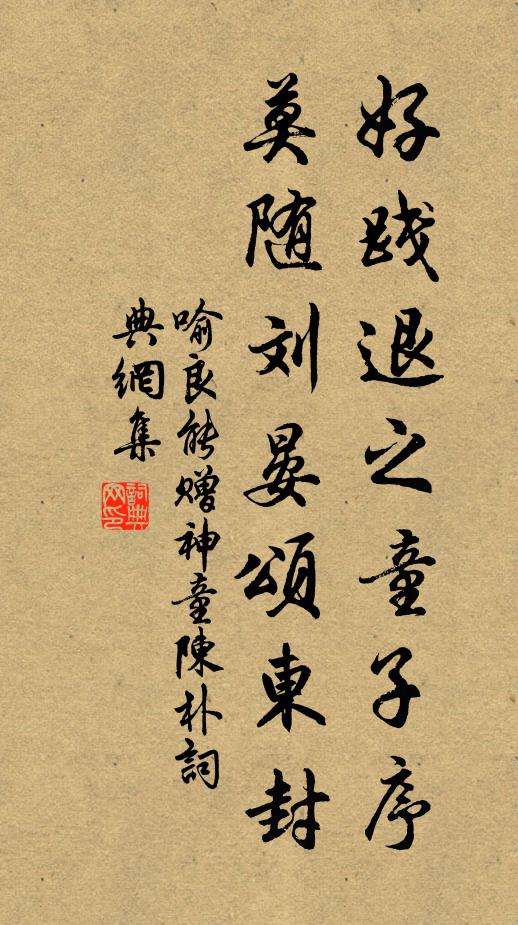 好践退之童子序
莫随刘晏頌東封
喻良能赠神童陳朴詞
典網集
詞典
网印